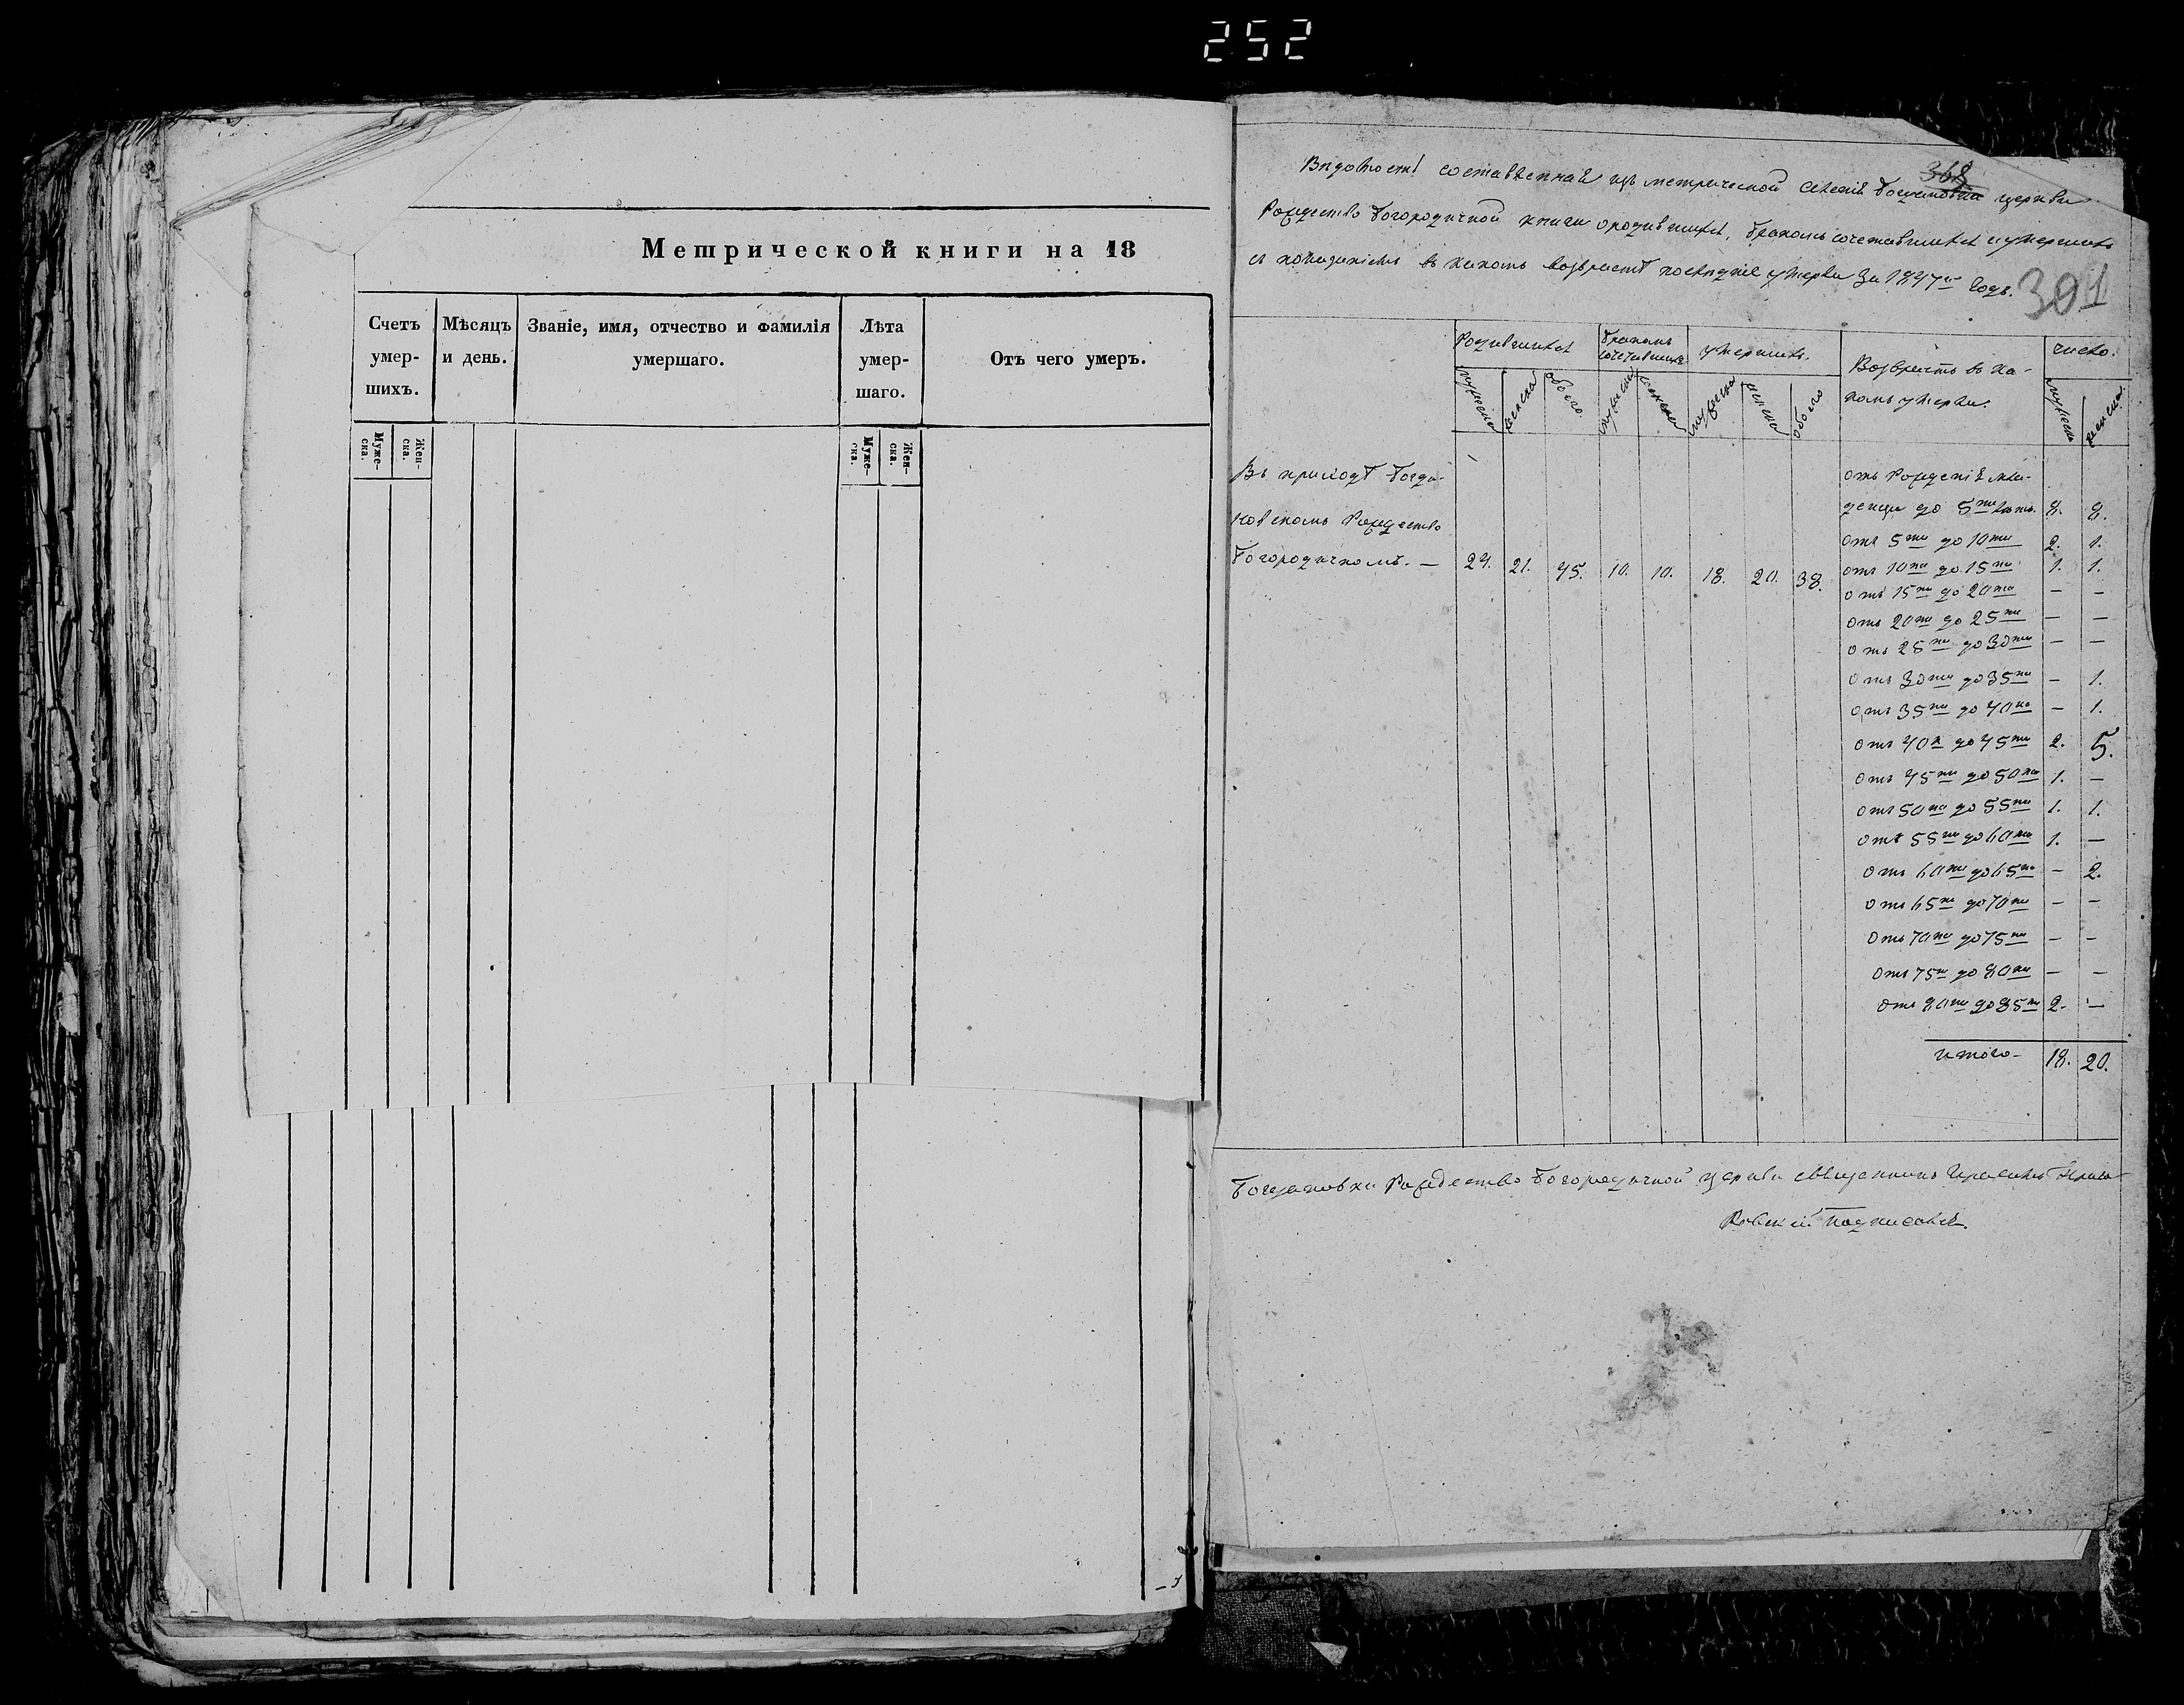 252
Метрической книги на 18
Счетъ умер-шихъ.
Мѣсяцъ и день.
Званіе, имя, отчество и фамилія умершаго.
Лѣта умер-шаго.
Отъ чего умеръ.
Муже-ска.
Жен-ска.
Муже-ска.
Жен-ска.
368
Вѣдомость составленная изъ метрической церкви
Рождество Богородичной книги о родившихся, бракомъ сочетавшихся и умершихъ
съ показаніемъ въ какомъ возрастѣ послѣдніе умерли за 1847й годъ.
301
Родившихся
бракомъ сочетавшихся
умершихъ.
Возрастъ въ ка-
комъ умерли.
число.
мужеска
женска
обоего
мужеска
женска
мужеска
женска
обоего
мужеска
женска
Въ приходѣ Богда-
новскомъ Рождество
Богородичномъ. — 24. 21. 45. 10. 10. 18. 20. 38.
отъ Рожденія мла-
денцы до 5ти лѣтъ. 8. 8.
отъ 5ти до 10ти 2. 1.
отъ 10ти до 15ти 1. 1.
отъ 15ти до 20ти — —
отъ 20ти до 25ти — —
отъ 25ти до 30ти — —
отъ 30ти до 35ти — 1.
отъ 35ти до 40ка — 1.
отъ 40а до 45ти 2. 5.
отъ 45ти до 50ти 1. —
отъ 50ти до 55ти 1. 1.
отъ 55ти до 60ти 1. —
отъ 60ти до 65ти — 2.
отъ 65ти до 70ти — —
отъ 70ти до 75ти — —
отъ 75ти до 80ти — —
отъ 80ти до 85ти 2. —
итого 18. 20.
Рождество Богородичной церкви священникъ